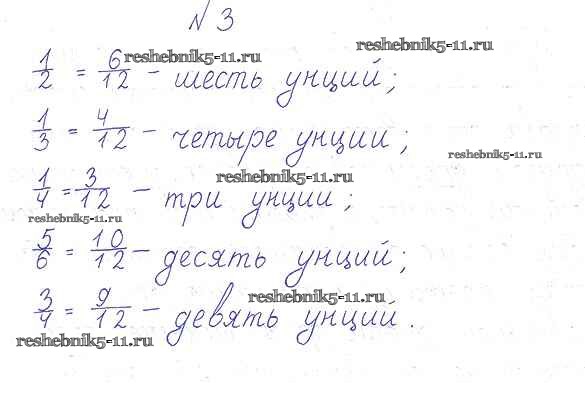 № 3
reshebnik5-11.ru reshebnik5-11.ru
1/2 = 6/12 - шесть унций;
1/3 = 4/12 - четыре унции;
reshebnik5-11.ru
reshebnik5-11.ru
1/4 = 3/12 - три унции;
reshebnik5-11.ru
5/6 = 10/12 - десять унций;
reshebnik5-11.ru
3/4 = 9/12 - девять унций.
reshebnik5-11.ru